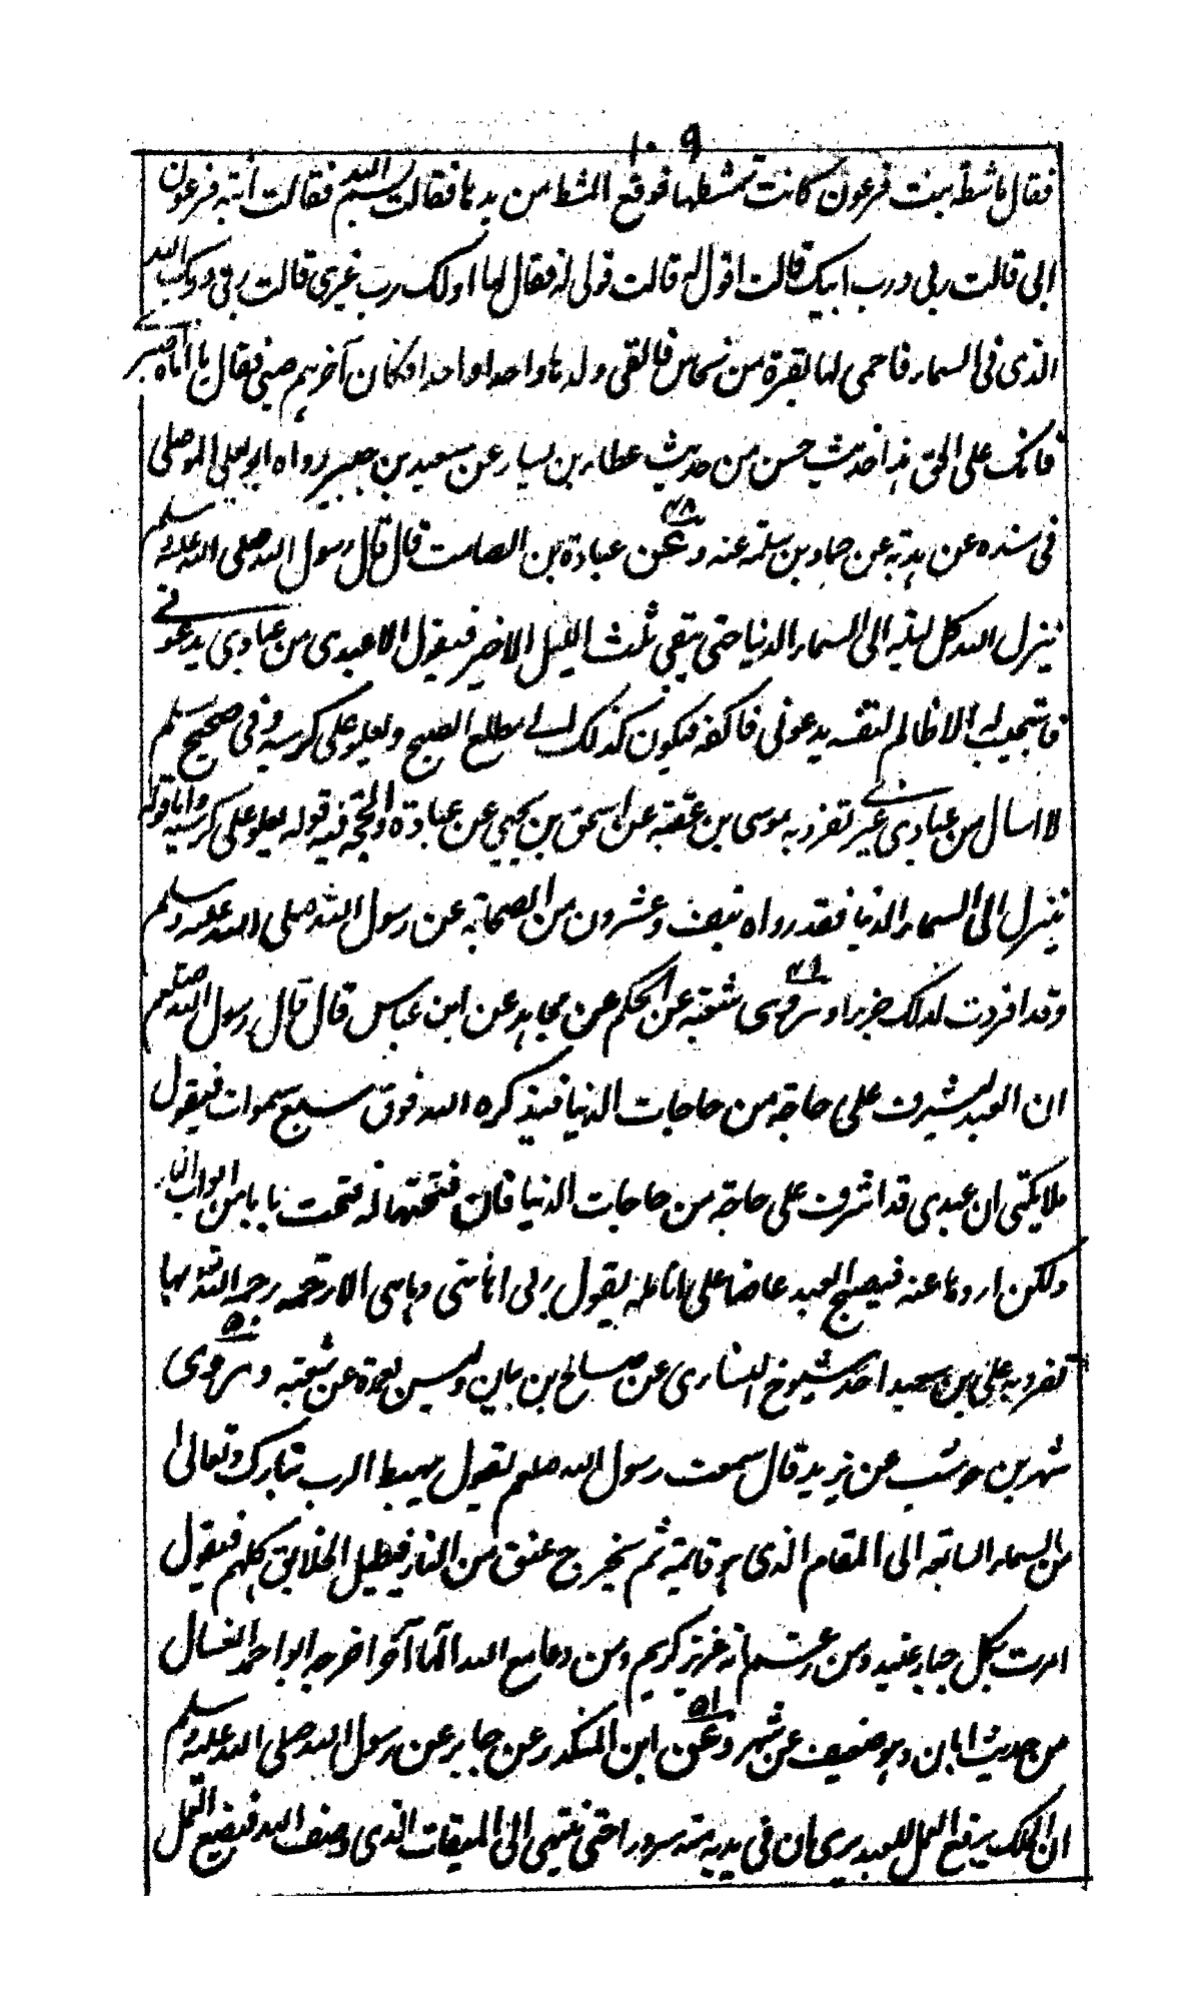 ١٠٩
فقال ماشطة بنت فرعون كانت تمشطها فوقع المشط من يدها فقالت بسم الله فقالت ابنة فرعون
ابى قالت ربى ورب ابيك قالت اقول له قالت قولى له فقال لها اولك رب غيرى قالت ربى وربك الله
الذى فى السماء فاحمى لها بقرة من نحاس فالقى ولدها واحدا واحدا وكان آخرهم صبى فقال يا اماه اصبرى
فانك على الحق هذا حديث حسن من حديث عطاء بن يسار عن سعيد بن جبير رواه ابو يعلى الموصلى
فى مسنده عن هدبة عن حماد بن سلمة عنه ٤٨ وعن عبادة بن الصامت قال قال رسول الله صلى الله عليه وسلم
ينزل الله كل ليلة الى السماء الدنيا حتى يبقى ثلث الليل الاخير فيقول الا عبدى من عبادى يدعونى
فاستجيب له الا ظالم لنفسه يدعونى فاكفه فيكون كذلك الى مطلع الصبح ويعلو على كرسيه وفى صحيح مسلم
لا اسال من عبادى غيرى تفرد به موسى بن عقبة عن اسحق بن يحيى عن عبادة والحجة فيه قوله يعلو على كرسيه واما قوله
ينزل الى السماء الدنيا فقد رواه نيف وعشرون من الصحابة عن رسول الله صلى الله عليه وسلم
وقد افردت لذلك جزءا ٤٩ وروى شعبة عن الحكم عن مجاهد عن ابن عباس قال قال رسول الله صلعم
ان العبد ليشرف على حاجة من حاجات الدنيا فيذكره الله فوق سبع سموات فيقول
ملايكتى ان عبدى قد اشرف على حاجة من حاجات الدنيا فان فتحتها له فتحت بابا من ابواب النار
ولكن ازووها عنه فيصبح العبد عاضا على انامله يقول ربى اتانى وماهى الا رحمة رحمه الله بها
تفرد به على بن سعيد احد شيوخ عن صالح بن بيان وليس بعمدة عن شعبة ٥٠ وروى
شهر بن حوشب عن يزيد قال سمعت رسول الله صلعم يقول يهبط الرب تبارك وتعالى
من السماء السابعة الى المقام الذى هو قايمه ثم يخرج عنق من النار فيظل الخلايق كلهم فيقول
امرت بكل جبار عنيد ومن زعم انه عزيز كريم ومن دعا مع الله الها آخر اخرجه ابو احمد العسال
من حديث ابان وهو ضعيف عن شهر ٥١ وعن ابن المنكدر عن جابر عن رسول الله صلى الله عليه وسلم
ان الملك يرفع العمل للعبد يرى ان فى يديه منه سرورا حتى ينتهى الى الميقات الذى وصف الله فيضع العمل